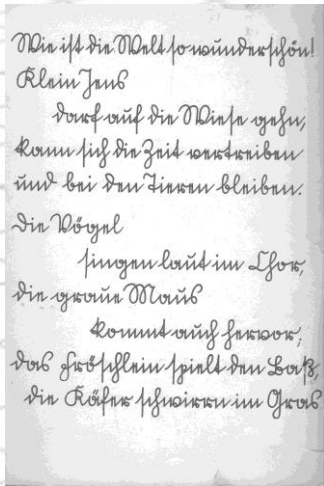 Wie ist die Welt so wunderschön!
Klein Jens
darf auf die Wiese gehn,
kann sich die Zeit vertreiben
und bei den Tieren bleiben.
Die Vögel
singen laut im Chor,
die graue Maus
kommt auch hervor,
das Fröschlein spielt den Baß,
die Käfer schwirrn im Gras